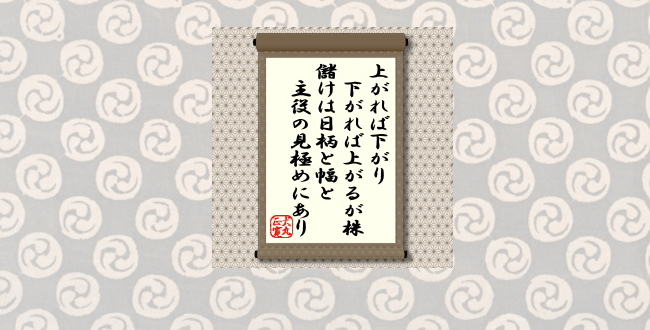 上がれば下がり
下がれば上がるが株
儲けは日柄と幅と
主役の見極めにあり